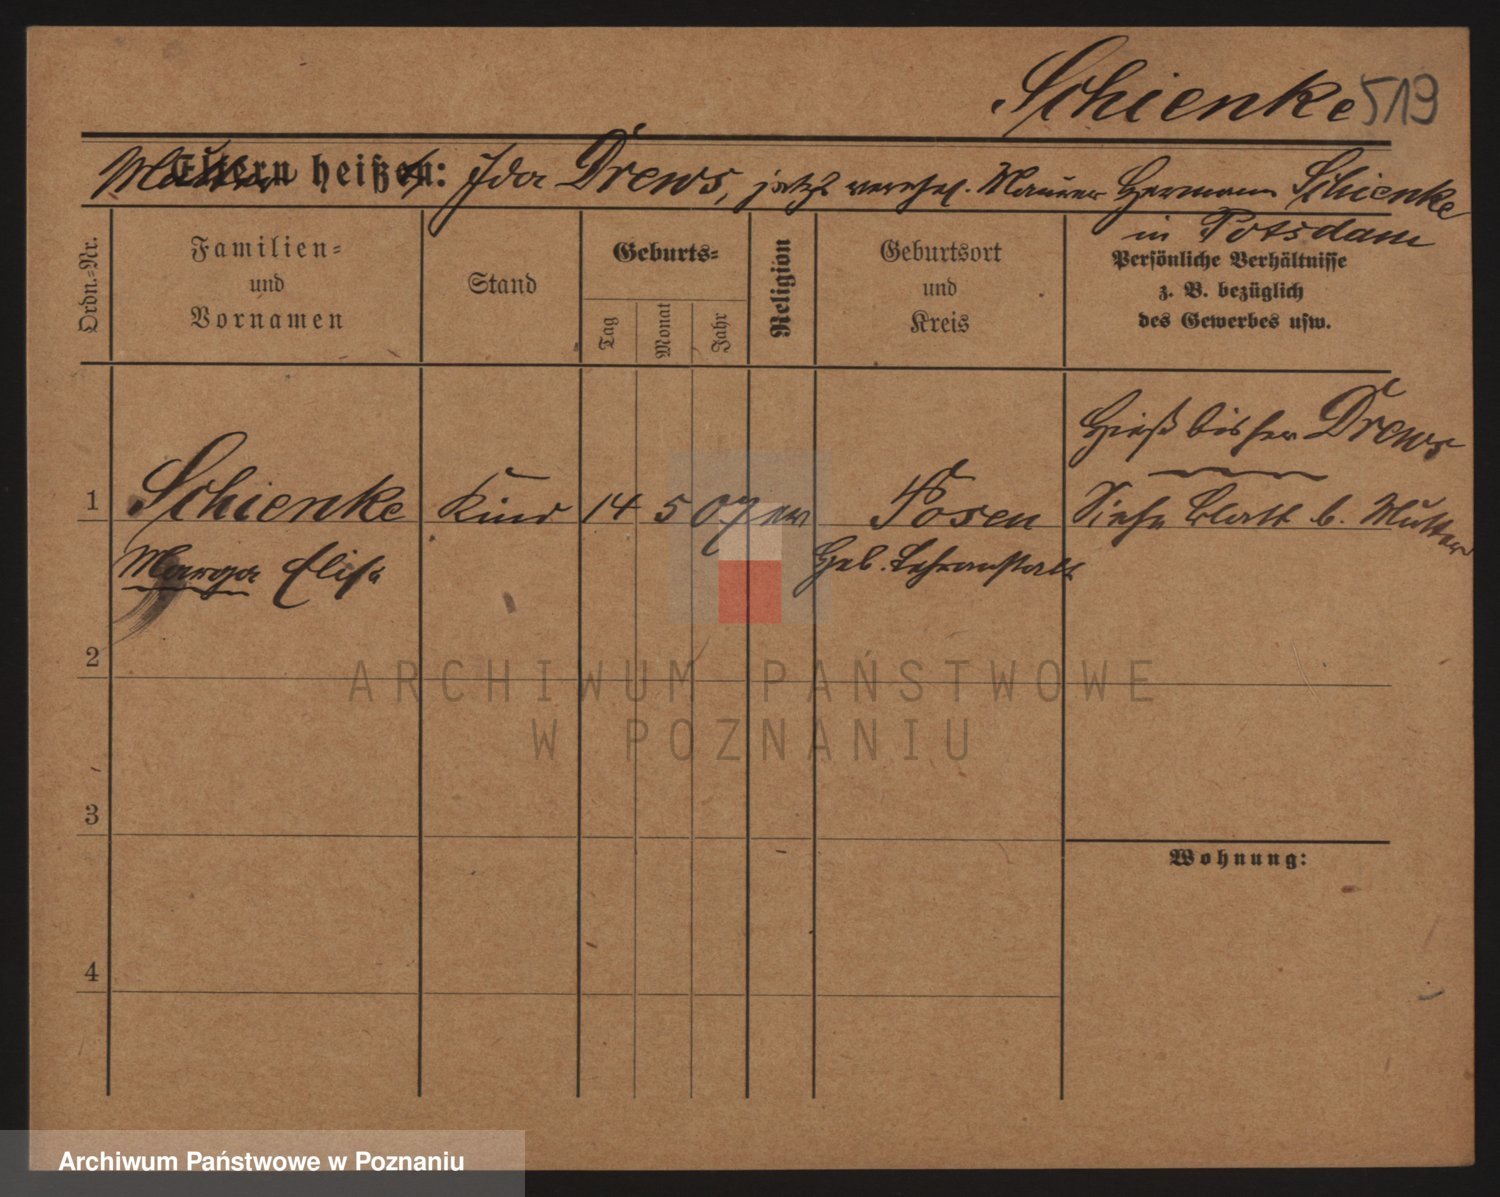 Schienke 519
Mutter Eltern heißen: Ida Drews, jetzt verehel. Maurer Hermann Schienke
in Potsdam
Ordn.-Nr.
Familien-
und
Vornamen
Stand
Geburts-
Tag
Monat
Jahr
Religion
Geburtsort
und
Kreis
Persönliche Verhältnisse
z. B. bezüglich
des Gewerbes usw.
Hieß bisher Drews
1 Schienke Kind 14 5 07 ev Posen Siehe Blatt b. Mutter
Marga Elise Heb. Lehranstalt
2
ARCHIWUM PAŃSTWOWE
W POZNANIU
3
Wohnung:
4
Archiwum Państwowe w Poznaniu